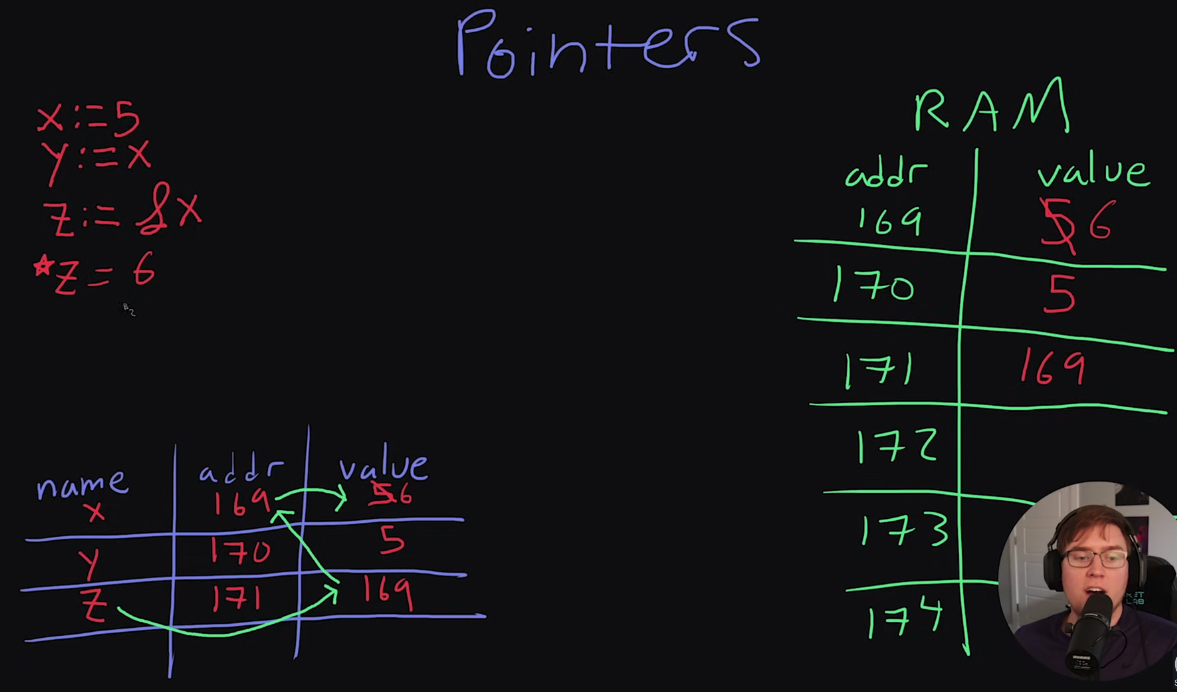 Pointers
x := 5
y := x
z := &x
*z = 6
RAM
addr value
169 5 6
170 5
171 169
172
173
174
name addr value
x 169 5 6
y 170 5
z 171 169